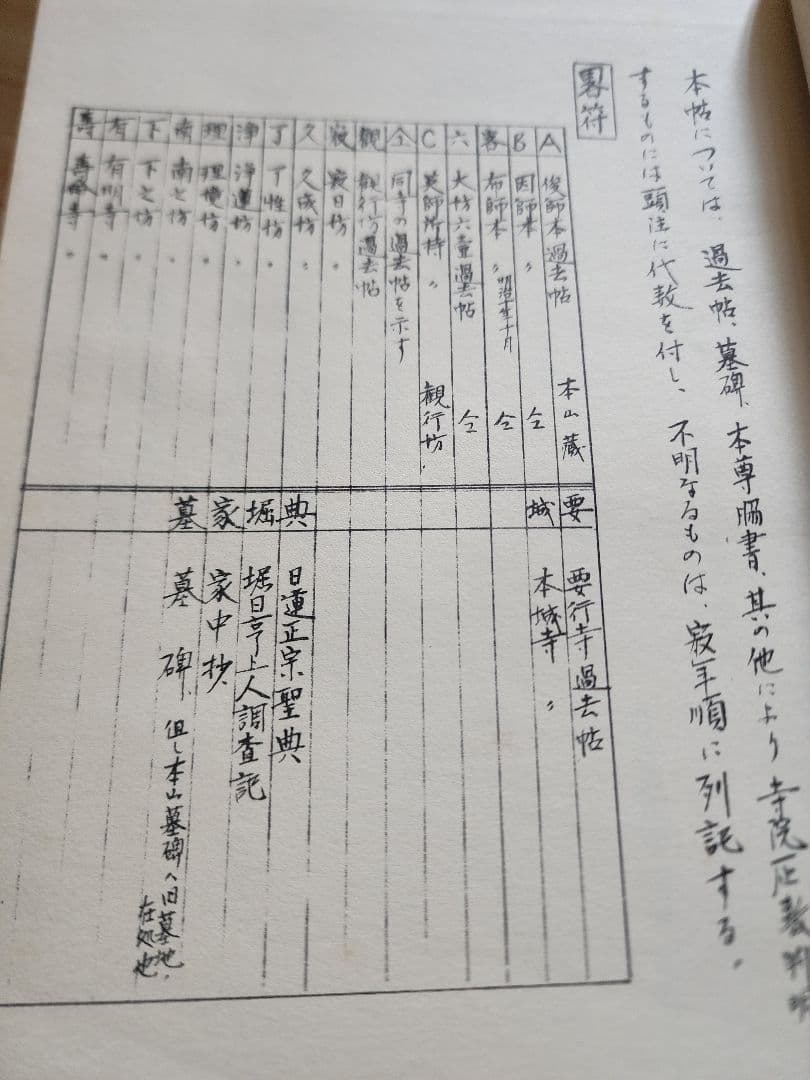 本帖については、過去帖、墓碑、本尊脇書、其の他により寺院歴教判明
するものには頭注に代数を付し、不明なるものは、寂年順に列記する。
畧符
A 俊師本過去帖 本山蔵
B 因師本 〃 仝
客 布師本 〃 明治十年十月 仝
六 大坊六壷過去帖 仝
C 英師所持 〃 観行坊
仝 同寺の過去帖を示す
観 観行坊過去帖
寂 寂日坊 〃
久 久成坊 〃
了 了性坊 〃
浄 浄蓮坊 〃
理 理境坊 〃
南 南之坊 〃
下 下之坊 〃
有 有明寺 〃
要 要行寺過去帖
城 本城寺 〃
典 日蓮正宗聖典
堀 堀日亨上人調査記
家 家中抄
墓 墓碑、但し本山墓碑ヘ旧墓地、
在処也